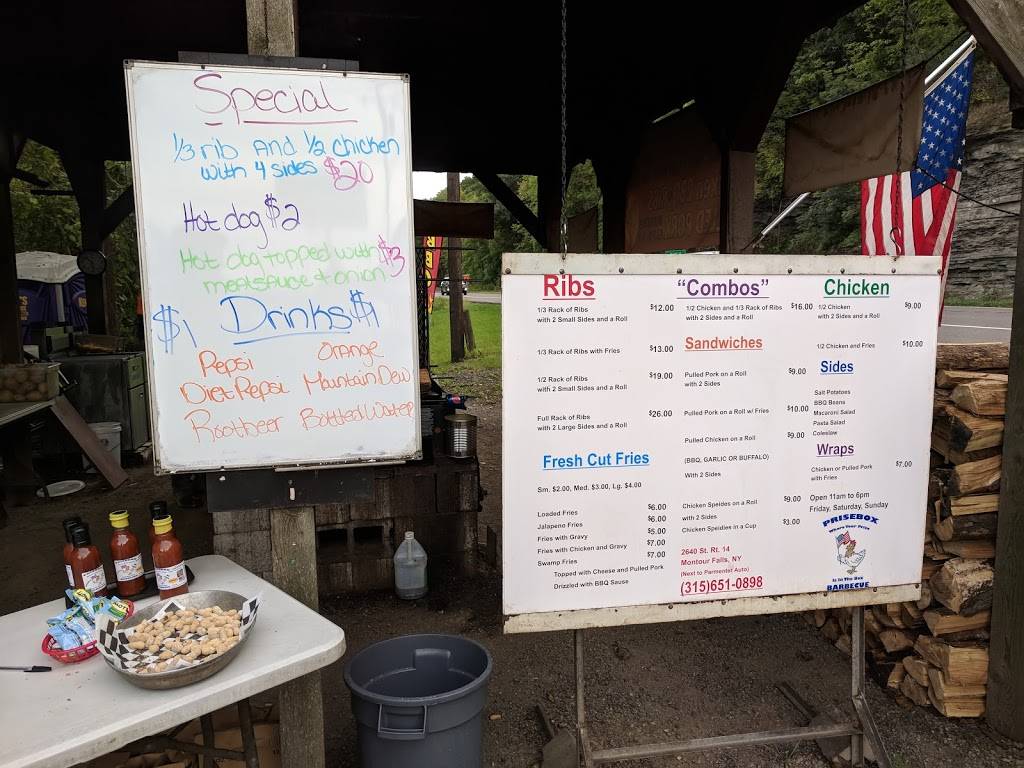 Special
1/3 rib and 1/2 chicken
with 4 sides $20
Hot dog $2
Hot dog topped with $3
meatsauce + onion
$1 Drinks $1
Pepsi Orange
Diet Pepsi Mountain Dew
Rootbeer Bottled Water
Ribs
1/3 Rack of Ribs $12.00
with 2 Small Sides and a Roll
1/3 Rack of Ribs with Fries $13.00
1/2 Rack of Ribs $19.00
with 2 Small Sides and a Roll
Full Rack of Ribs $26.00
with 2 Large Sides and a Roll
Fresh Cut Fries
Sm. $2.00, Med. $3.00, Lg. $4.00
Loaded Fries $6.00
Jalapeno Fries $6.00
Fries with Gravy $5.00
Fries with Chicken and Gravy $7.00
Swamp Fries $7.00
Topped with Cheese and Pulled Pork
Drizzled with BBQ Sause
"Combos"
1/2 Chicken and 1/3 Rack of Ribs $16.00
with 2 Sides and a Roll
Sandwiches
Pulled Pork on a Roll $9.00
with 2 Sides
Pulled Pork on a Roll w/ Fries $10.00
Pulled Chicken on a Roll $9.00
(BBQ, GARLIC OR BUFFALO)
With 2 Sides
Chicken Speides on a Roll $9.00
with 2 Sides
Chicken Speidies in a Cup $3.00
2640 St. Rt. 14
Montour Falls, NY
(Next to Parmenter Auto)
(315)651-0898
Chicken
1/2 Chicken $9.00
with 2 Sides and a Roll
1/2 Chicken and Fries $10.00
Sides
Salt Potatoes
BBQ Beans
Macaroni Salad
Pasta Salad
Coleslaw
Wraps
Chicken or Pulled Pork $7.00
with Fries
Open 11am to 6pm
Friday, Saturday, Sunday
PRISEBOX
Where Your Prize
Is In The Box
BARBECUE